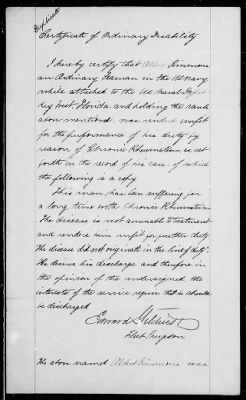 Duplicate
Certificate of Ordinary Disability
I hereby certify that Albert Simmons
an Ordinary Seaman in the US Navy
while attached to the US Naval
Key West Florida and holding the rank
above mentioned was rendered unfit
for the performance of his duty by
reason of Chronic Rheumatism as set
forth in the record of his case of which
the following is a copy
This man has been suffering for
a long time with Chronic Rheumatism
The disease is not amenable to treatment
and renders him unfit for further duty
The disease did not originate in the line of duty
He desires his discharge and therefore in
the opinion of the undersigned the
interests of the service require that he should
be discharged
Edward
Fleet Surgeon
The above named Albert Simmons was